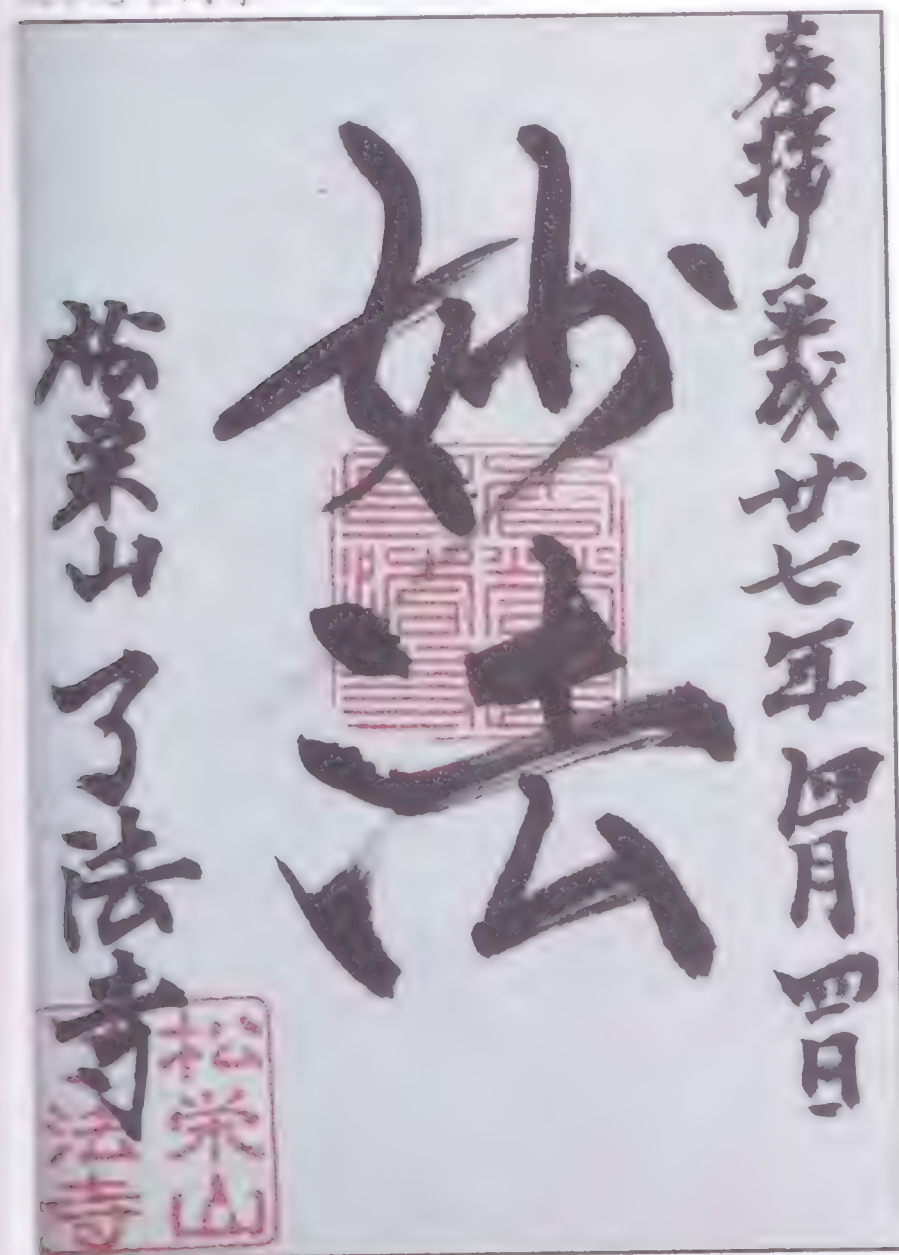 奉拝 平成廿七年四月四日
妙法
松栄山 了法寺
松栄山
法寺